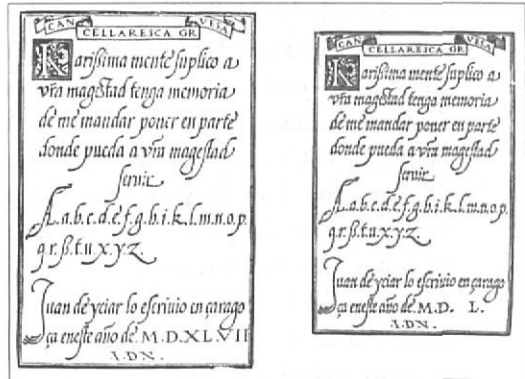 CAN
CELLARESCA GR
UESA
Rarißima mente suplico a
vra magestad tenga memoria
de me mandar poner en parte
donde pueda a vra magestad
servir
A.a.b.c.d.e.f.g.h.i.k.l.m.n.o.p.
q.r.ß.t.u.x.y.z.
Juan de yciar lo escrivio en çarago
ça eneste año de. M.D.XLVII
I.DN.
CAN
CELLARESCA GR
UESA
Rarißima mente suplico a
vra magestad tenga memoria
de me mandar poner en parte
donde pueda a vra magestad
servir
A.a.b.c.d.e.f.g.h.i.k.l.m.n.o.p.
q.r.ß.t.u.x.y.z.
Juan de yciar lo escrivio en çarago
ça eneste año de. M.D. L.
I.DN.